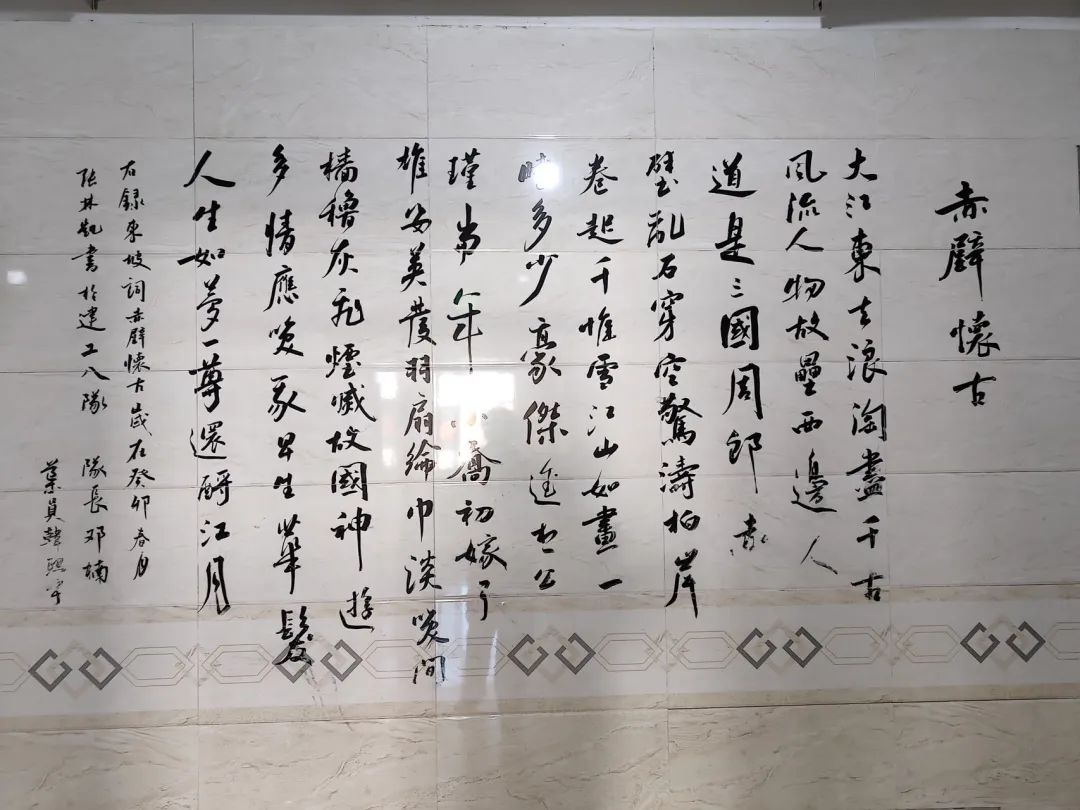 赤壁懷古
大江東去浪淘盡千古
風流人物故壘西邊人
道是三國周郎赤
壁亂石穿空驚濤拍岸
卷起千堆雪江山如畫一
時多少豪傑遙想公
瑾當年小喬初嫁了
雄姿英發羽扇綸巾淡笑間
檣櫓灰飛煙滅故國神遊
多情應笑我早生華髮
人生如夢一尊還酹江月
右錄東坡詞赤壁懷古歲在癸卯春月
張林凱書於建工八隊 隊長邓楠